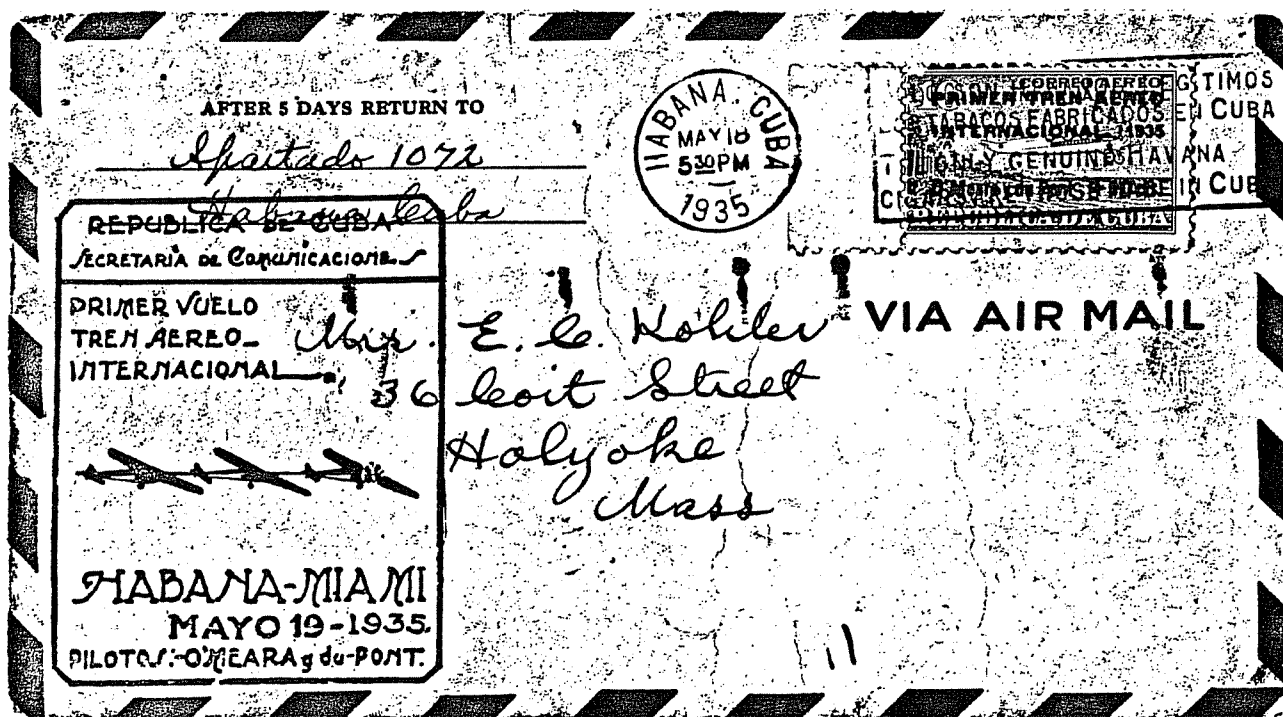 AFTER 5 DAYS RETURN TO
Apartado 1072
Habana Cuba
HABANA. CUBA
MAY 18
5 30 PM
1935
CORREO AEREO
PRIMER TREN AEREO
INTERNACIONAL. 1935
TABACOS FABRICADOS EN CUBA
Y GENUINE HAVANA
REPUBLICA DE CUBA
SECRETARIA DE COMUNICACIONES
PRIMER VUELO
TREN AEREO
INTERNACIONAL
HABANA-MIAMI
MAYO 19-1935.
PILOTOS:-O'MEARA y du-PONT.
VIA AIR MAIL
Mr. E. C. Kohler
36 Coit Street
Holyoke
Mass